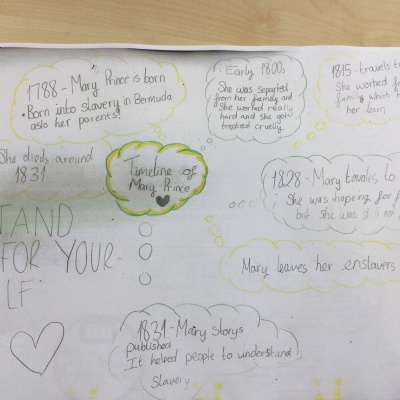 1788 - Mary Prince is born
• Born into slavery in Bermuda
aslo her parents!
Early 1800s
She was separted
from her family and
she worked really
hard and she got
treated cruelly
1815 - travels to
She worked fo
family which
her burn
She dieds around
1831
Timeline of
Mary Prince
1828 - Mary travles to
She was hoping for f
but she was still not
TAND
FOR YOUR-
LF
Mary leaves her enslavers
1831 - Mary storys
published
It helped people to understand
Slavery